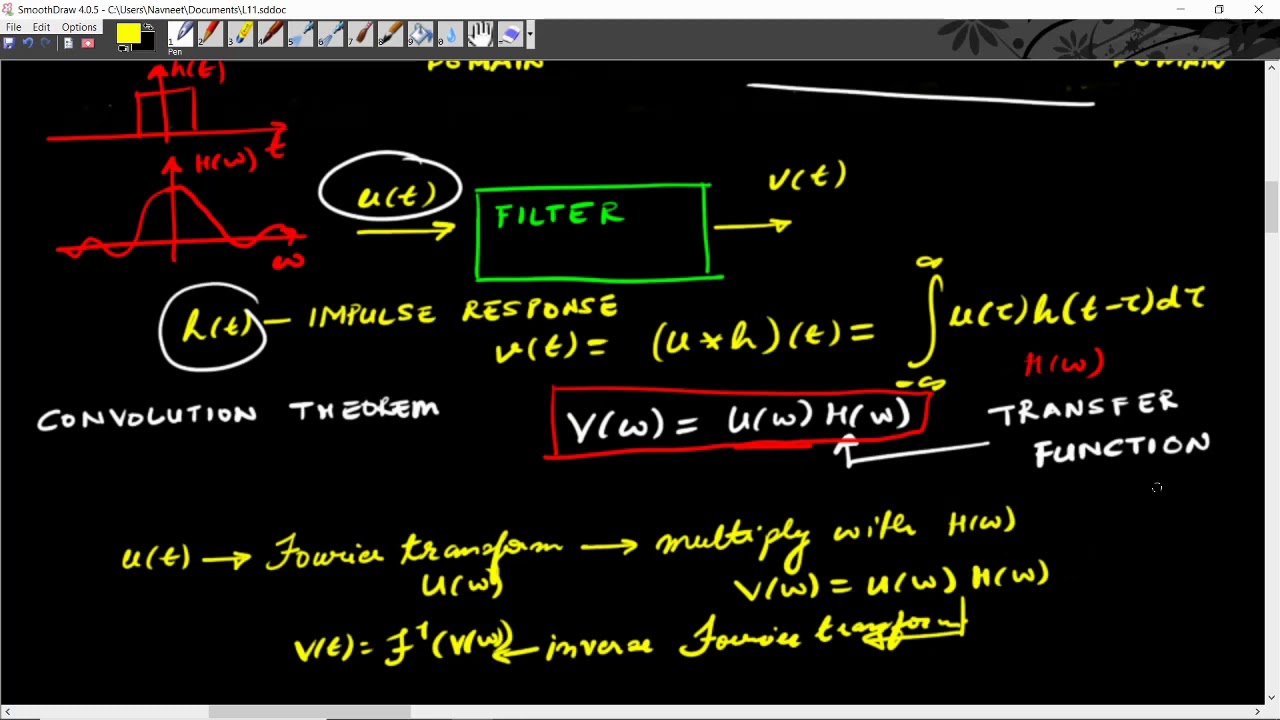 SmoothDraw 4.0.5 - C:\Users\Navneet\Documents\L11.sddoc
File Edit Options
1 2 3 4 5 6 7 8 9 0
Pen
DOMAIN DOMAIN
h(t)
t
H(ω)
ω
u(t)
FILTER
v(t)
h(t) — IMPULSE RESPONSE
v(t) = (u * h)(t) = ∫_{-∞}^{∞} u(τ)h(t-τ)dτ
H(ω)
CONVOLUTION THEOREM
V(ω) = U(ω) H(ω)
TRANSFER
FUNCTION
u(t) → Fourier transform → multiply with H(ω)
U(ω)
V(ω) = U(ω) H(ω)
V(t) = F⁻¹(V(ω)) ← inverse Fourier transform